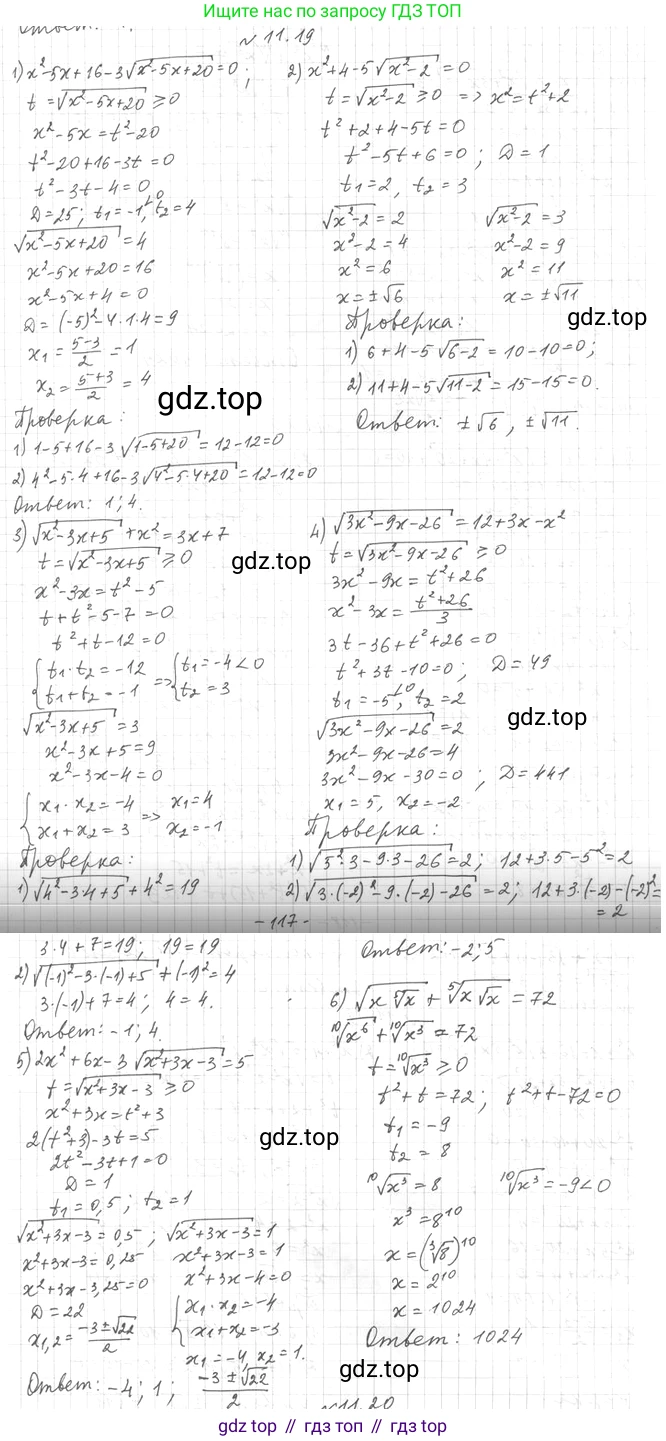 Ищите нас по запросу ГДЗ ТОП
№ 11.19
1) x²-5x+16-3√(x²-5x+20)=0;
t=√(x²-5x+20) ≥0
x²-5x=t²-20
t²-20+16-3t=0
t²-3t-4=0
D=25; t₁=-1<0, t₂=4
√(x²-5x+20)=4
x²-5x+20=16
x²-5x+4=0
D=(-5)²-4·1·4=9
x₁=(5-3)/2=1
x₂=(5+3)/2=4
Проверка:
1) 1-5+16-3√(1-5+20)=12-12=0
2) 4²-5·4+16-3√(4²-5·4+20)=12-12=0
Ответ: 1; 4.
2) x²+4-5√(x²-2)=0
t=√(x²-2) ≥0 => x²=t²+2
t²+2+4-5t=0
t²-5t+6=0; D=1
t₁=2, t₂=3
√(x²-2)=2 √(x²-2)=3
x²-2=4 x²-2=9
x²=6 x²=11
x=±√6 x=±√11
gdz.top
Проверка:
1) 6+4-5√(6-2)=10-10=0;
2) 11+4-5√(11-2)=15-15=0.
gdz.top
Ответ: ±√6, ±√11.
3) √(x²-3x+5)+x²=3x+7
t=√(x²-3x+5) ≥0
x²-3x=t²-5
t+t²-5-7=0
t²+t-12=0
{t₁·t₂=-12 => {t₁=-4<0
t₁+t₂=-1 t₂=3
√(x²-3x+5)=3
x²-3x+5=9
x²-3x-4=0
{x₁·x₂=-4 => x₁=4
x₁+x₂=3 x₂=-1
Проверка:
1) √(4²-3·4+5)+4²=19
gdz.top
4) √(3x²-9x-26)=12+3x-x²
t=√(3x²-9x-26) ≥0
3x²-9x=t²+26
x²-3x=(t²+26)/3
3t-36+t²+26=0
t²+3t-10=0; D=49
t₁=-5<0, t₂=2
√(3x²-9x-26)=2
gdz.top
3x²-9x-26=4
3x²-9x-30=0; D=441
x₁=5, x₂=-2
Проверка:
1) √(5²·3-9·3-26)=2; 12+3·5-5²=2
2) √(3·(-2)²-9·(-2)-26)=2; 12+3·(-2)-(-2)²=
=2
-117-
3·4+7=19; 19=19
2) √((-1)²-3·(-1)+5)+(-1)²=4
3·(-1)+7=4; 4=4.
Ответ: -1; 4.
Ответ: -2; 5
5) 2x²+6x-3√(x²+3x-3)=5
t=√(x²+3x-3) ≥0
x²+3x=t²+3
2(t²+3)-3t=5
2t²-3t+1=0
D=1
t₁=0,5; t₂=1
gdz.top
√(x²+3x-3)=0,5; √(x²+3x-3)=1
x²+3x-3=0,25 x²+3x-3=1
x²+3x-3,25=0 x²+3x-4=0
D=22 {x₁·x₂=-4
x₁,₂=(-3±√22)/2 x₁+x₂=-3
x₁=-4, x₂=1.
Ответ: -4; 1; (-3±√22)/2
6) √(x ⁵√x)+⁵√(x√x)=72
¹⁰√(x⁶)+¹⁰√(x³)=72
t=¹⁰√(x³) ≥0
t²+t=72; t²+t-72=0
t₁=-9
t₂=8
¹⁰√(x³)=8 ¹⁰√(x³)=-9<0
x³=8¹⁰
x=(³√8)¹⁰
x=2¹⁰
x=1024
Ответ: 1024
gdz.top
№11.20
gdz.top // гдз топ // гдз.топ